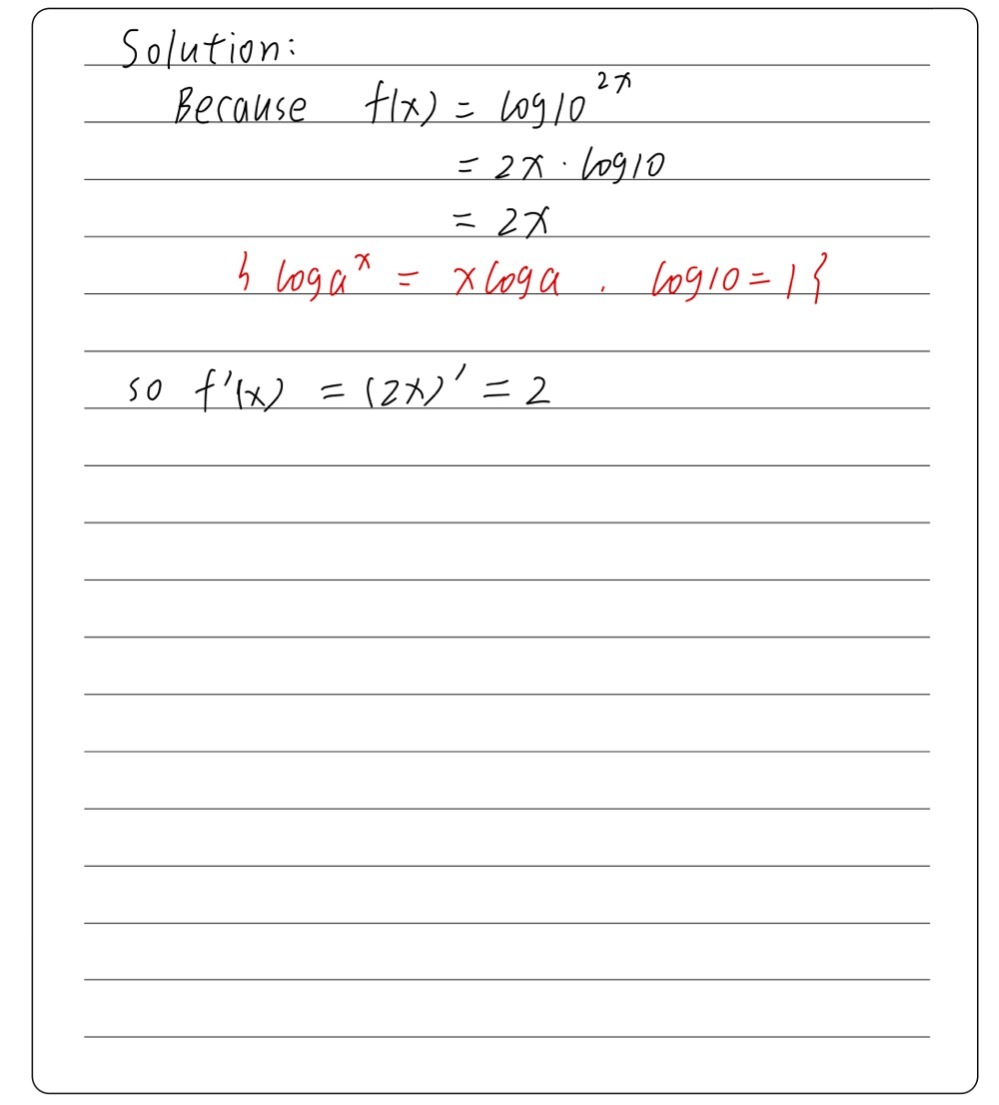 Solution:
Because f(x) = log10^{2x}
= 2x · log10
= 2x
{ loga^x = xloga . log10 = 1 }
so f'(x) = (2x)' = 2